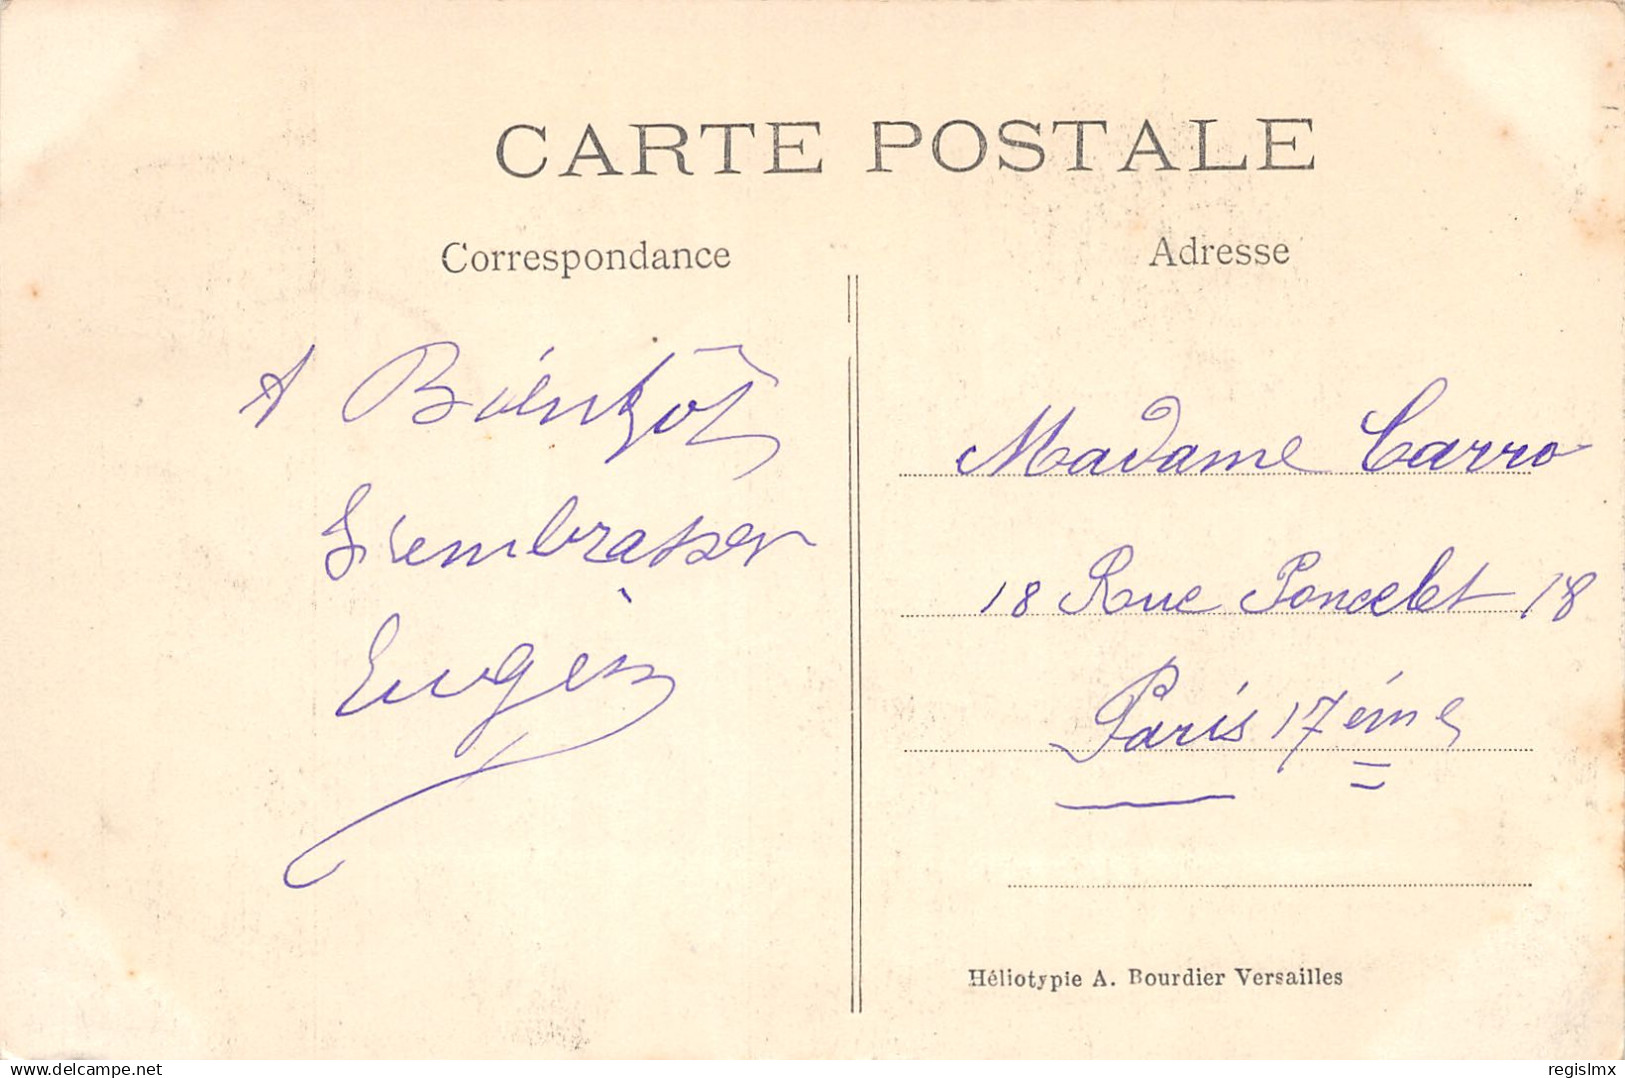 CARTE POSTALE
Correspondance
A Biéntôt
embrasser
Eugèn
Adresse
Madame Carro
18 Rue Poncelet 18
Paris 17éme
Héliotypie A. Bourdier Versailles
delcampe.net
regislmx